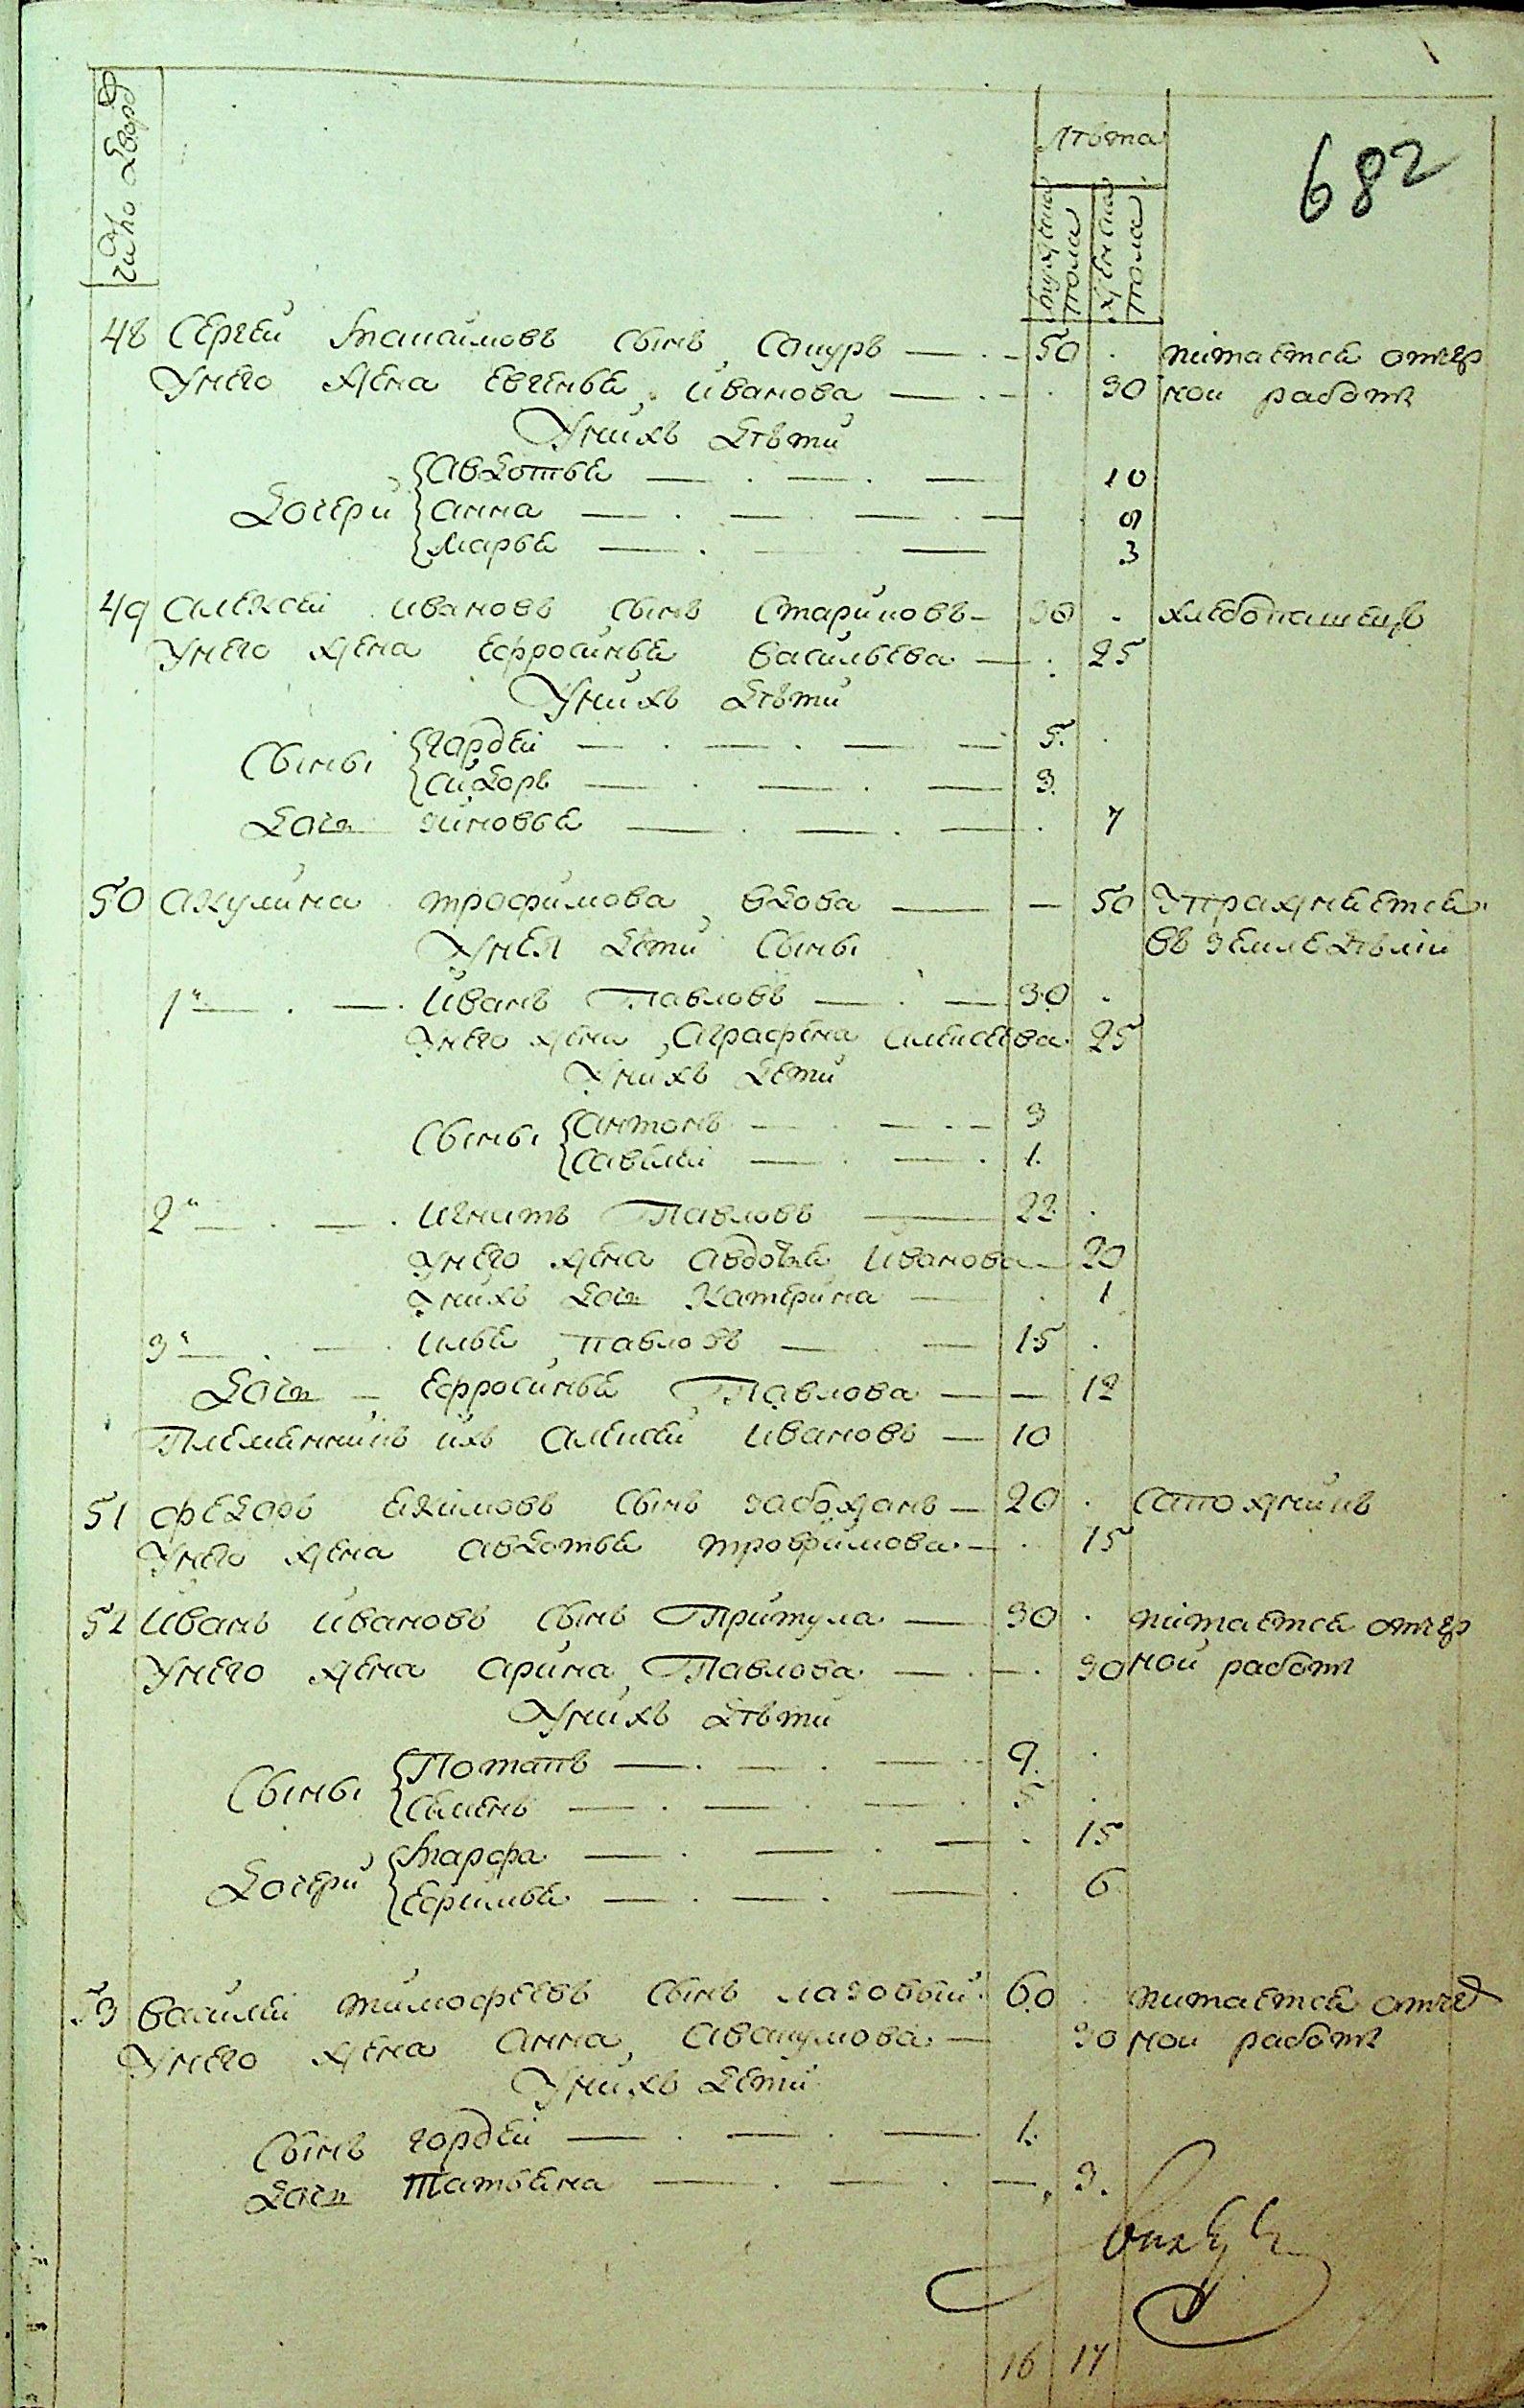 число дворовъ
Лѣта
682
мужеска пола
женска пола
48 Сергей Максимовъ сынъ Сакуръ 50 питается отчер
Унего жена Евгенья Иванова 30 ной работи
Унихъ дѣти
Дочери Авдотья 10
Анна 9
Марья 3
49 Алексей Ивановъ сынъ Стариковъ 30 хлебопашецъ
Унего жена Ефросинья Васильева 25
Унихъ дѣти
Сыны Гардей 5
Сидоръ 3
Дочь Зиновья 7
50 Акулина Трофимова вдова 50 Упражняется
Унея дети сыны въ земледѣлии
1й Иванъ Павловъ 30
Унего жена Аграфена Алексеева 25
Унихъ дети
Сыны Антонъ 3
Савелей 1
2й Игнатъ Павловъ 22
Унего жена Авдотья Иванова 20
Унихъ дочь Катерина 1
3й Илья Павловъ 15
Дочь Ефросинья Павлова 12
Племянникъ ихъ Алексей Ивановъ 10
51 Федоръ Екимовъ сынъ 20 сапожникъ
Унего жена Авдотья Трофимова 15
52 Иванъ Ивановъ сынъ Притула 30 питается отчер
Унего жена Арина Павлова 30 ной работи
Унихъ дѣти
Сыны Потапъ 9
Семенъ 5
Дочери Марфа 15
Ефимья 6
53 Василей Тимофеевъ сынъ Лазовый 60 питается отчер
Унего жена Анна Авакумова 30 ной работи
Унихъ дети
Сынъ Гордей 1
Дочь Татьяна 3
16 17